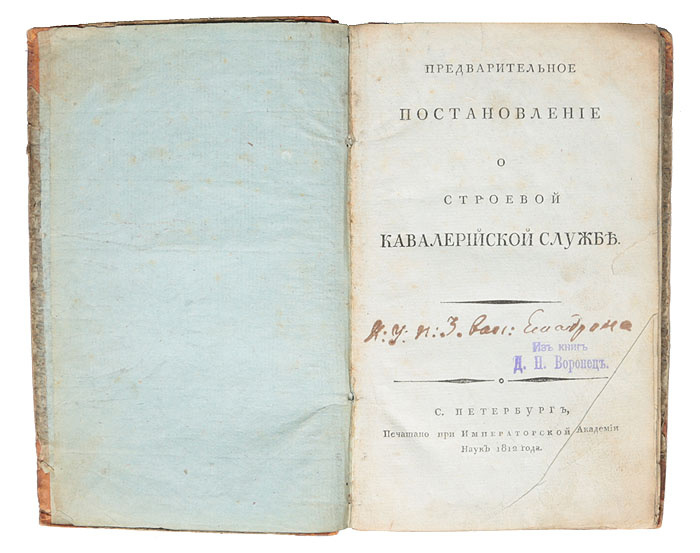 ПРЕДВАРИТЕЛЬНОЕ
ПОСТАНОВЛЕНІЕ
О
СТРОЕВОЙ
КАВАЛЕРІЙСКОЙ СЛУЖБѢ.
Изъ книгъ
Д. П. Воронецъ.
С. ПЕТЕРБУРГЪ,
Печатано при ИМПЕРАТОРСКОЙ Академіи
Наукъ 1812 года.